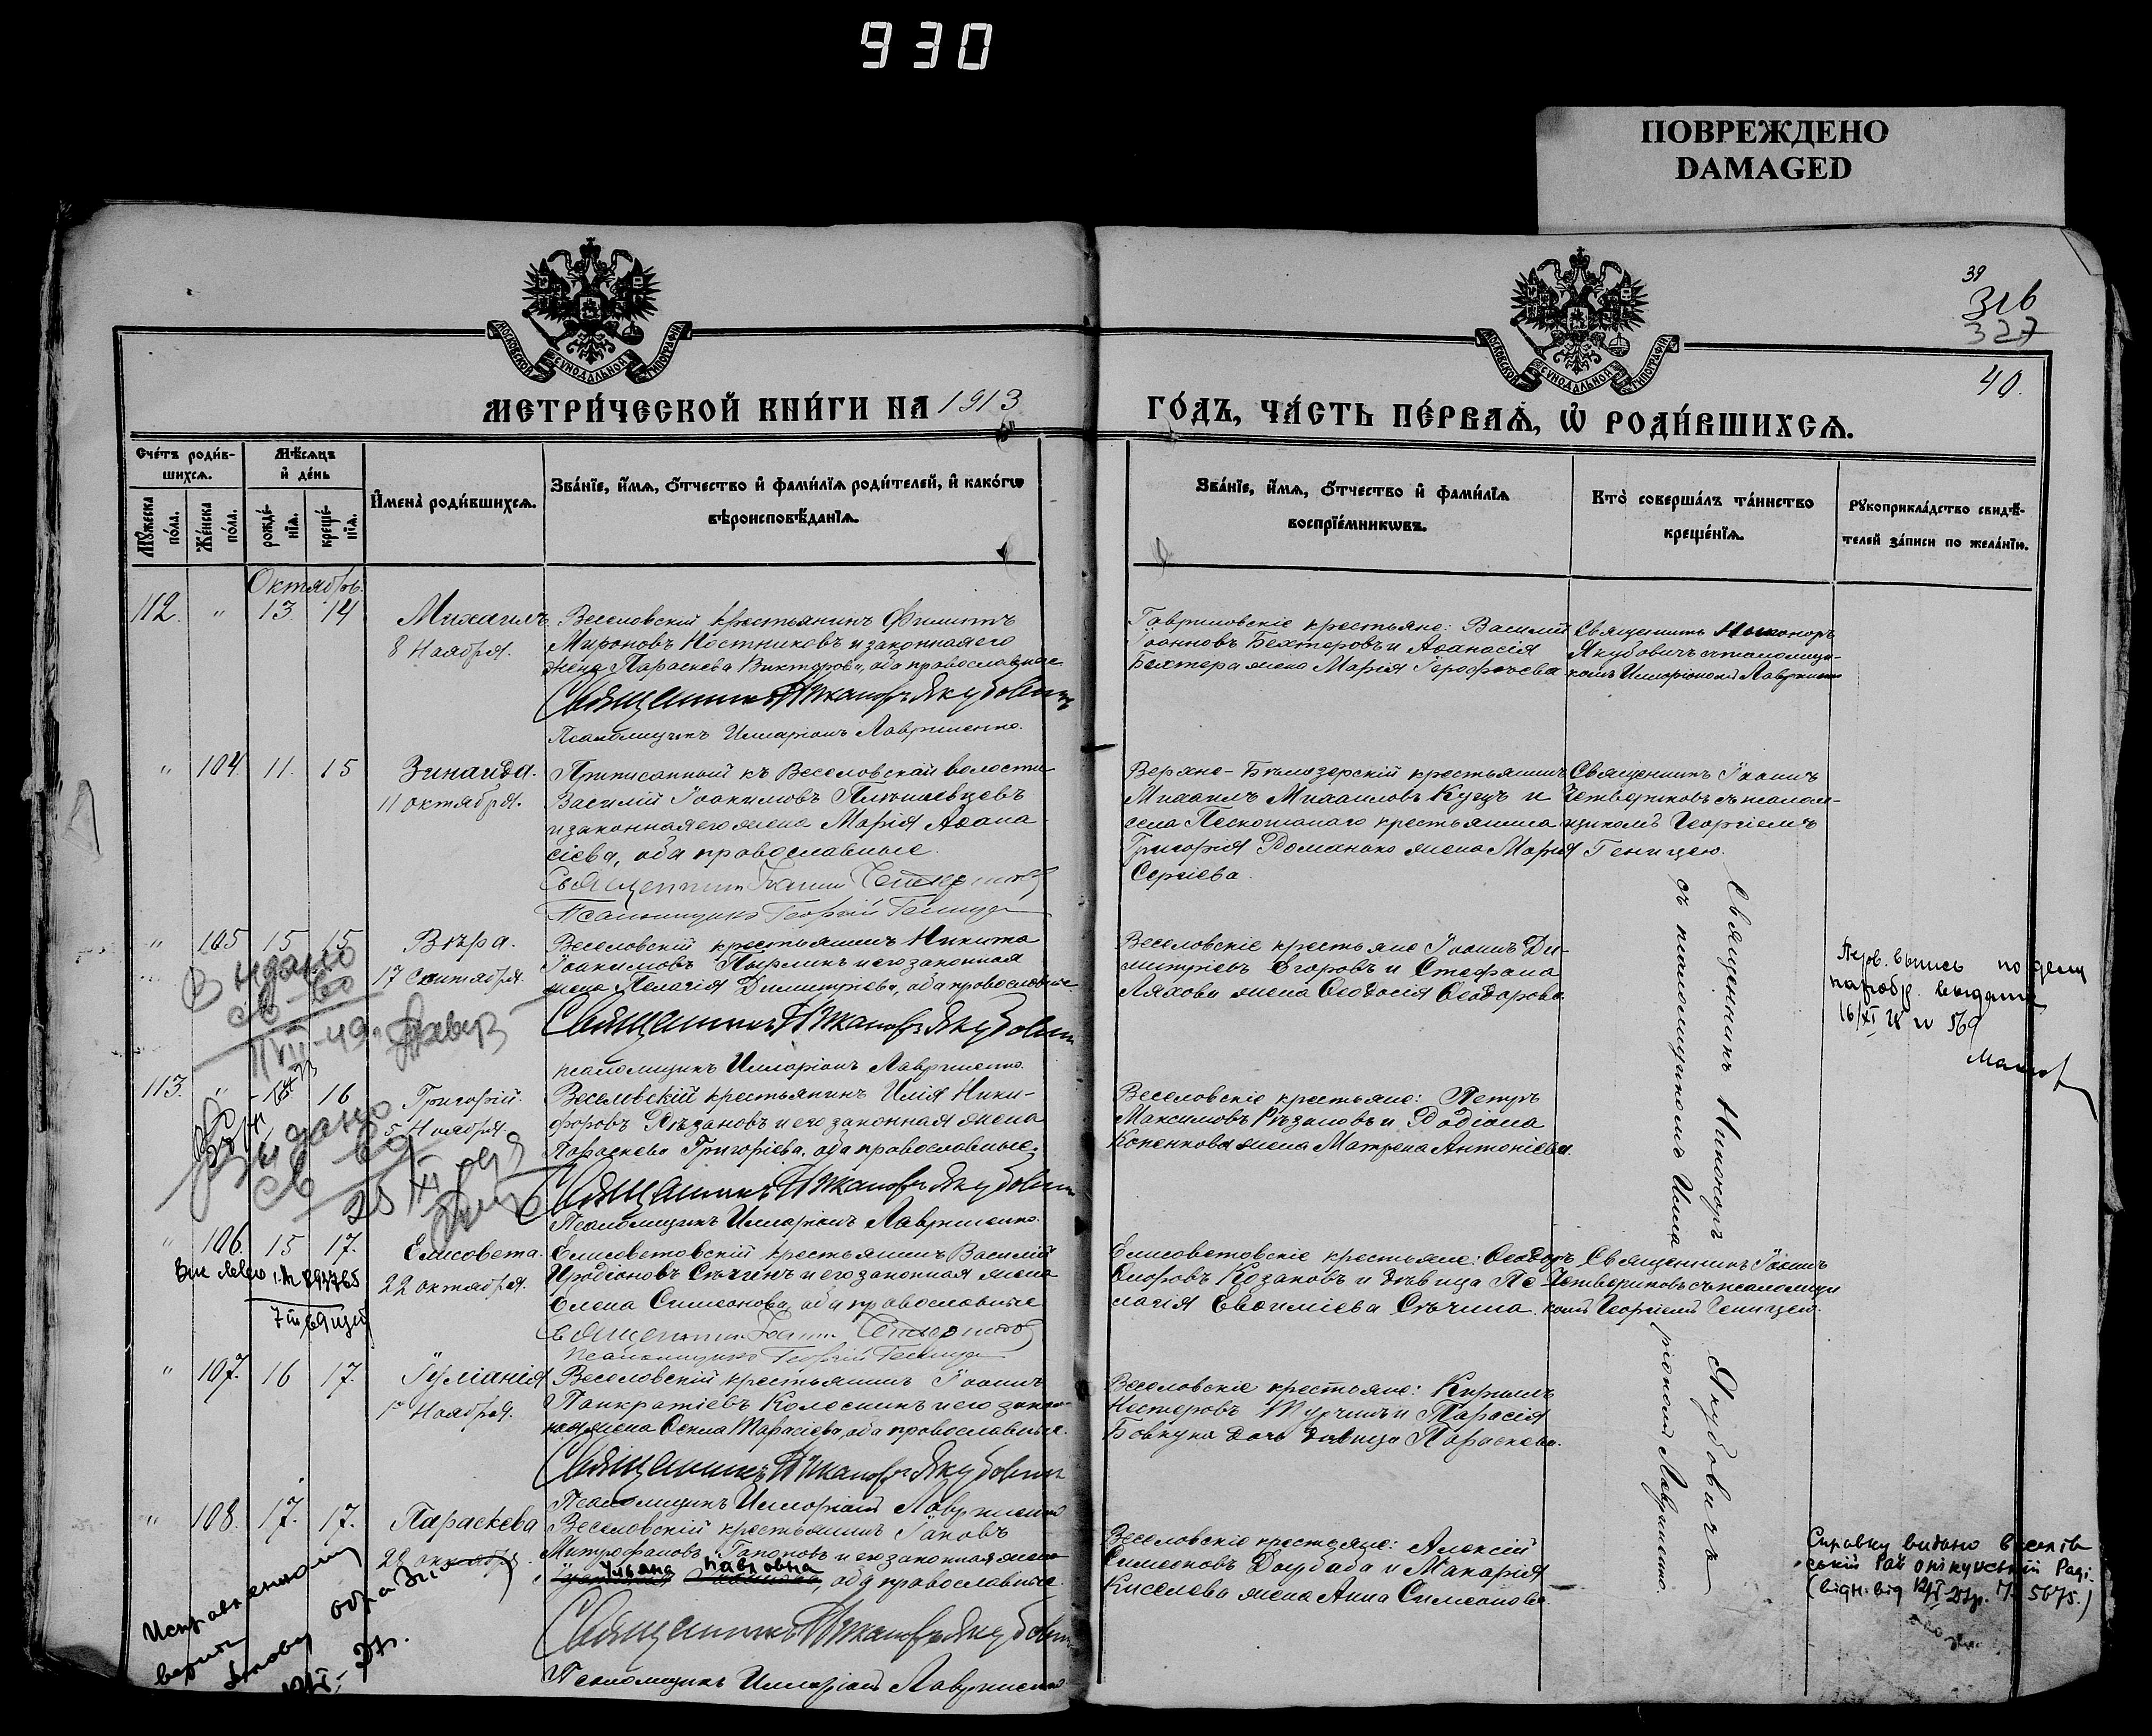 930
ПОВРЕЖДЕНО
DAMAGED
39
316
327
40.
МОСКОВСКОЙ СѴНОДАЛЬНОЙ ТИПОГРАФІИ
МОСКОВСКОЙ СѴНОДАЛЬНОЙ ТИПОГРАФІИ
МЕТРИ́ЧЕСКОЙ КНИ́ГИ НА 1913
ГО́ДЪ, ЧА́СТЬ ПЕ́РВАѦ, Ѡ҆ РОДИ́ВШИХСѦ.
Сче́тъ роди́в-
шихсѧ.
Мѣ́сѧцъ
и҆ де́нь
Мꙋ́жеска
по́ла.
Же́нска
по́ла.
рожде́-
нїѧ.
креще́-
нїѧ.
И҆мена̀ роди́вшихсѧ.
Зва́нїе, и҆́мѧ, ѻ҆́тчество и҆ фами́лїѧ роди́телей, и҆ како́гѡ
вѣроисповѣ́данїѧ.
Зва́нїе, и҆́мѧ, ѻ҆́тчество и҆ фами́лїѧ
воспрїе́мникѡвъ.
Кто̀ соверша́лъ та́инство
креще́нїѧ.
Рꙋкоприкла́дство свидѣ́-
телей за́писи по жела́нїю.
Октябрь.
112. " 13 14 Михаилъ
8 Ноября.
Веселовскій крестьянинъ Филиппъ
Мироновъ Постниковъ и законная его
жена Параскева Викторова, оба православные
Священникъ Никаноръ Якубовичъ
Псаломщикъ Илларіонъ Лавриненко.
Гавриловскіе крестьяне: Василій
Іоанновъ Бехтеровъ и Аѳанасія
Бехтера жена Марія Іерофеева
Священникъ Никаноръ
Якубовичъ съ псаломщи-
комъ Илларіономъ Лавриненко
" 104 11. 15 Зинаида.
11 октября.
Приписанный къ Веселовской волости
Василій Іоакимовъ
и законная его жена Марія Аѳана
сіева, оба православные.
Священникъ Іоаннъ Четвериковъ
Псаломщикъ Георгій Геницеу
Верхне-Бѣлозерскій крестьянинъ
Михаилъ Михаиловъ Куцъ и
села Песчошаного крестьянина
Григорія Романько жена Марія
Сергіева.
Священникъ Іоаннъ
Четвериковъ съ псалом-
щикомъ Георгіемъ
Геницею.
" 105 15 15 Вѣра.
17 Сентября.
Веселовскій крестьянинъ Никита
Іоакимовъ Пырликъ и его законная
жена Пелагія Димитріева, оба православные
Священникъ Никаноръ Якубовичъ
псаломщикъ Илларіонъ Лавриненко.
Веселовскіе крестьяне Іоаннъ Ди-
митріевъ Егоровъ и Стефана
Ляхова жена Ѳеодосія Ѳеодорова
Священникъ Никаноръ Якубовичъ
съ псаломщикомъ Илла ріономъ Лавриненко.
выдано
113. " 16 Григорій.
5 Ноября.
Веселовскій крестьянинъ Илія Ники-
форовъ Рѣзановъ и его законная жена
Параскева Григоріева, оба православные.
Священникъ Никаноръ Якубовичъ
Псаломщикъ Илларіонъ Лавриненко.
Веселовскіе крестьяне: Петръ
Максимовъ Рѣзановъ и Родіона
Копенкова жена Матрена Антоніева.
выдано
" 106. 15 17. Елисовета.
22 октября.
Елисоветовскій крестьянинъ Василій
Иродіоновъ Сѣчинъ и его законная жена
Елена Симеонова, оба православные
Священникъ Іоаннъ Четвериковъ
Псаломщикъ Георгій Геницеу
Елисоветовскіе крестьяне: Ѳеодоръ
Козаковъ и дѣвица Пе-
лагія Евѳиміева Сѣчина.
Священникъ Іоаннъ
Четвериковъ съ псаломщи
комъ Георгіемъ Геницею.
" 107. 16 17. Іуліанія
1 Ноября.
Веселовскій крестьянинъ Іоаннъ
Панкратіевъ Колесникъ и его закон-
ная жена Тарасіева, оба православные.
Священникъ Никаноръ Якубовичъ
Псаломщикъ Илларіонъ Лавриненко
Веселовскіе крестьяне: Кириллъ
Нестеровъ Турчинъ и Тарасія
Бовкуна дочь дѣвица Параскева.
" 108. 17. 17. Параскева
28 октября.
Веселовскій крестьянинъ Іаковъ
Митрофановъ Гапоновъ и его законная жена
Ульяна Павловна, оба православные.
Священникъ Никаноръ Якубовичъ
Псаломщикъ Илларіонъ Лавриненко
Веселовскіе крестьяне: Алексій
Симеоновъ и Макарія
Киселева жена Анна Симеонова.
Исправленному
верить